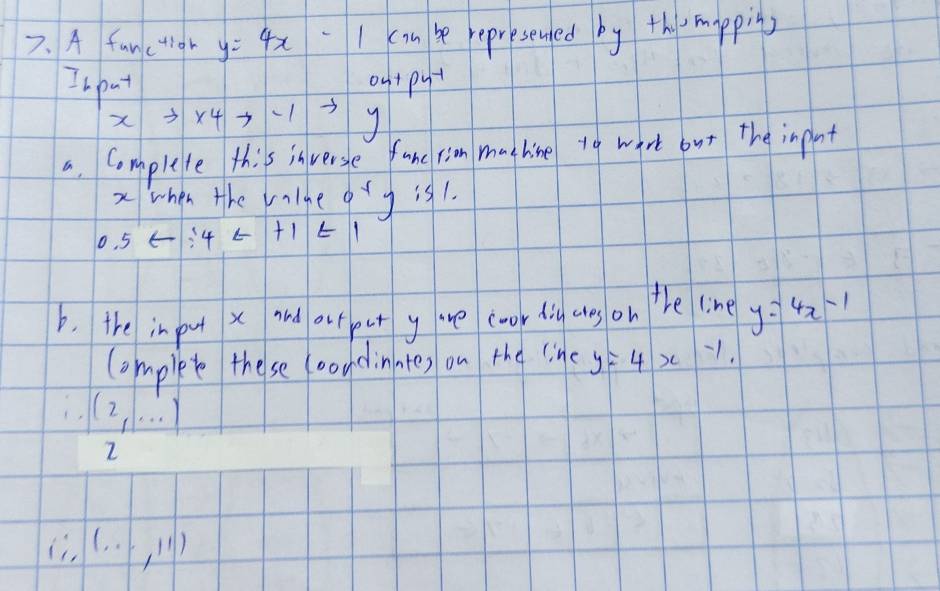 7. A function y = 4x - 1 can be represented by this mapping
Input output
x → ×4 → -1 → y
a. Complete this inverse function machine to work out the input
x when the value of y is 1.
0.5 ← ÷4 ← +1 ← 1
b. the input x and output y are coordinates on the line y = 4x - 1
Complete these coordinates on the line y = 4x - 1.
i. (2, ...)
2
ii. (..., 11)